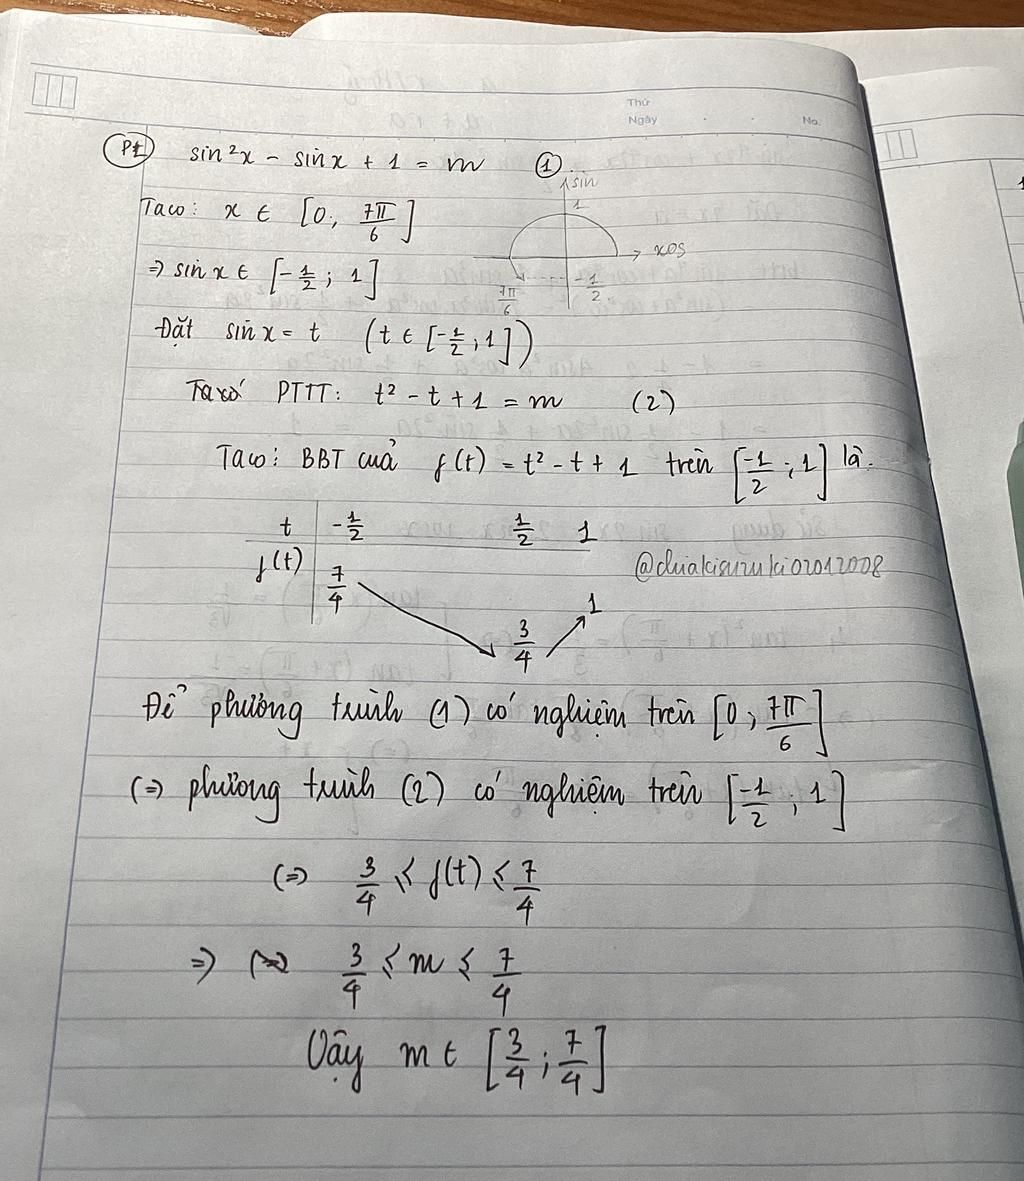 Thứ
Ngày No.
Pt sin²x - sinx + 1 = m ①
Ta có: x ∈ [0; 7π/6]
sin
1
cos
-1/2
7π/6
=> sin x ∈ [-1/2; 1]
Đặt sin x = t (t ∈ [-1/2; 1])
Ta có PTTT: t² - t + 1 = m (2)
Ta có: BBT của f(t) = t² - t + 1 trên [-1/2; 1] là.
t -1/2 1/2 1
f(t) 7/4 3/4 1
@chiakisuzuki02012008
Để phương trình (1) có nghiệm trên [0; 7π/6]
(=) phương trình (2) có nghiệm trên [-1/2; 1]
(=) 3/4 ≤ f(t) ≤ 7/4
=> 3/4 ≤ m ≤ 7/4
Vậy m ∈ [3/4; 7/4]